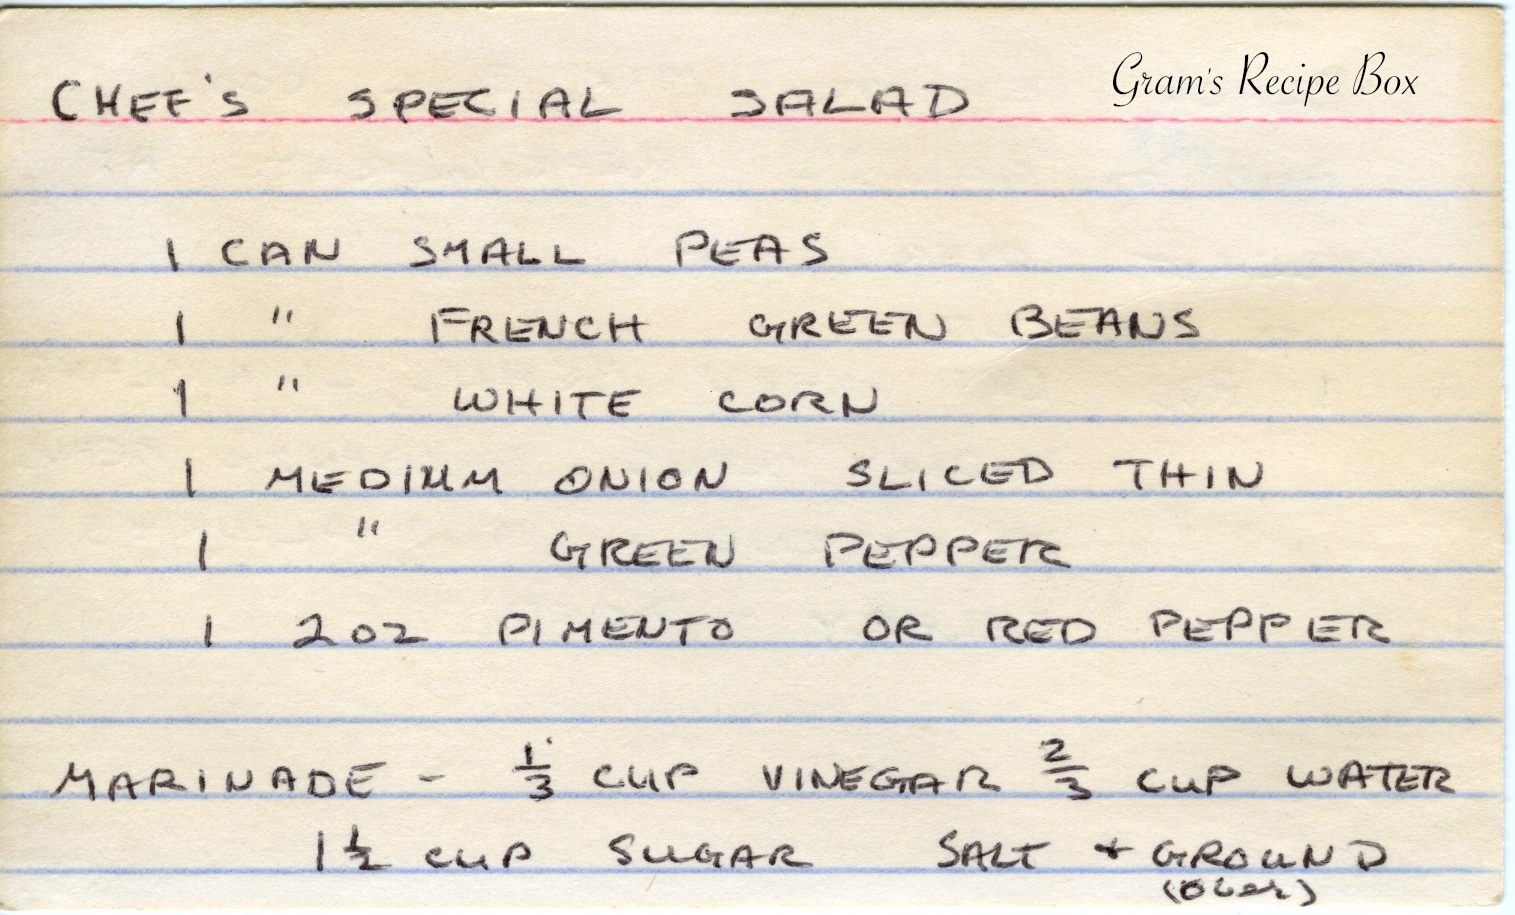 CHEF'S SPECIAL SALAD
Gram's Recipe Box
1 CAN SMALL PEAS
1 " FRENCH GREEN BEANS
1 " WHITE CORN
1 MEDIUM ONION SLICED THIN
1 " GREEN PEPPER
1 2 OZ PIMENTO OR RED PEPPER
MARINADE - 1/3 CUP VINEGAR 2/3 CUP WATER
1 1/2 CUP SUGAR SALT + GROUND
(over)